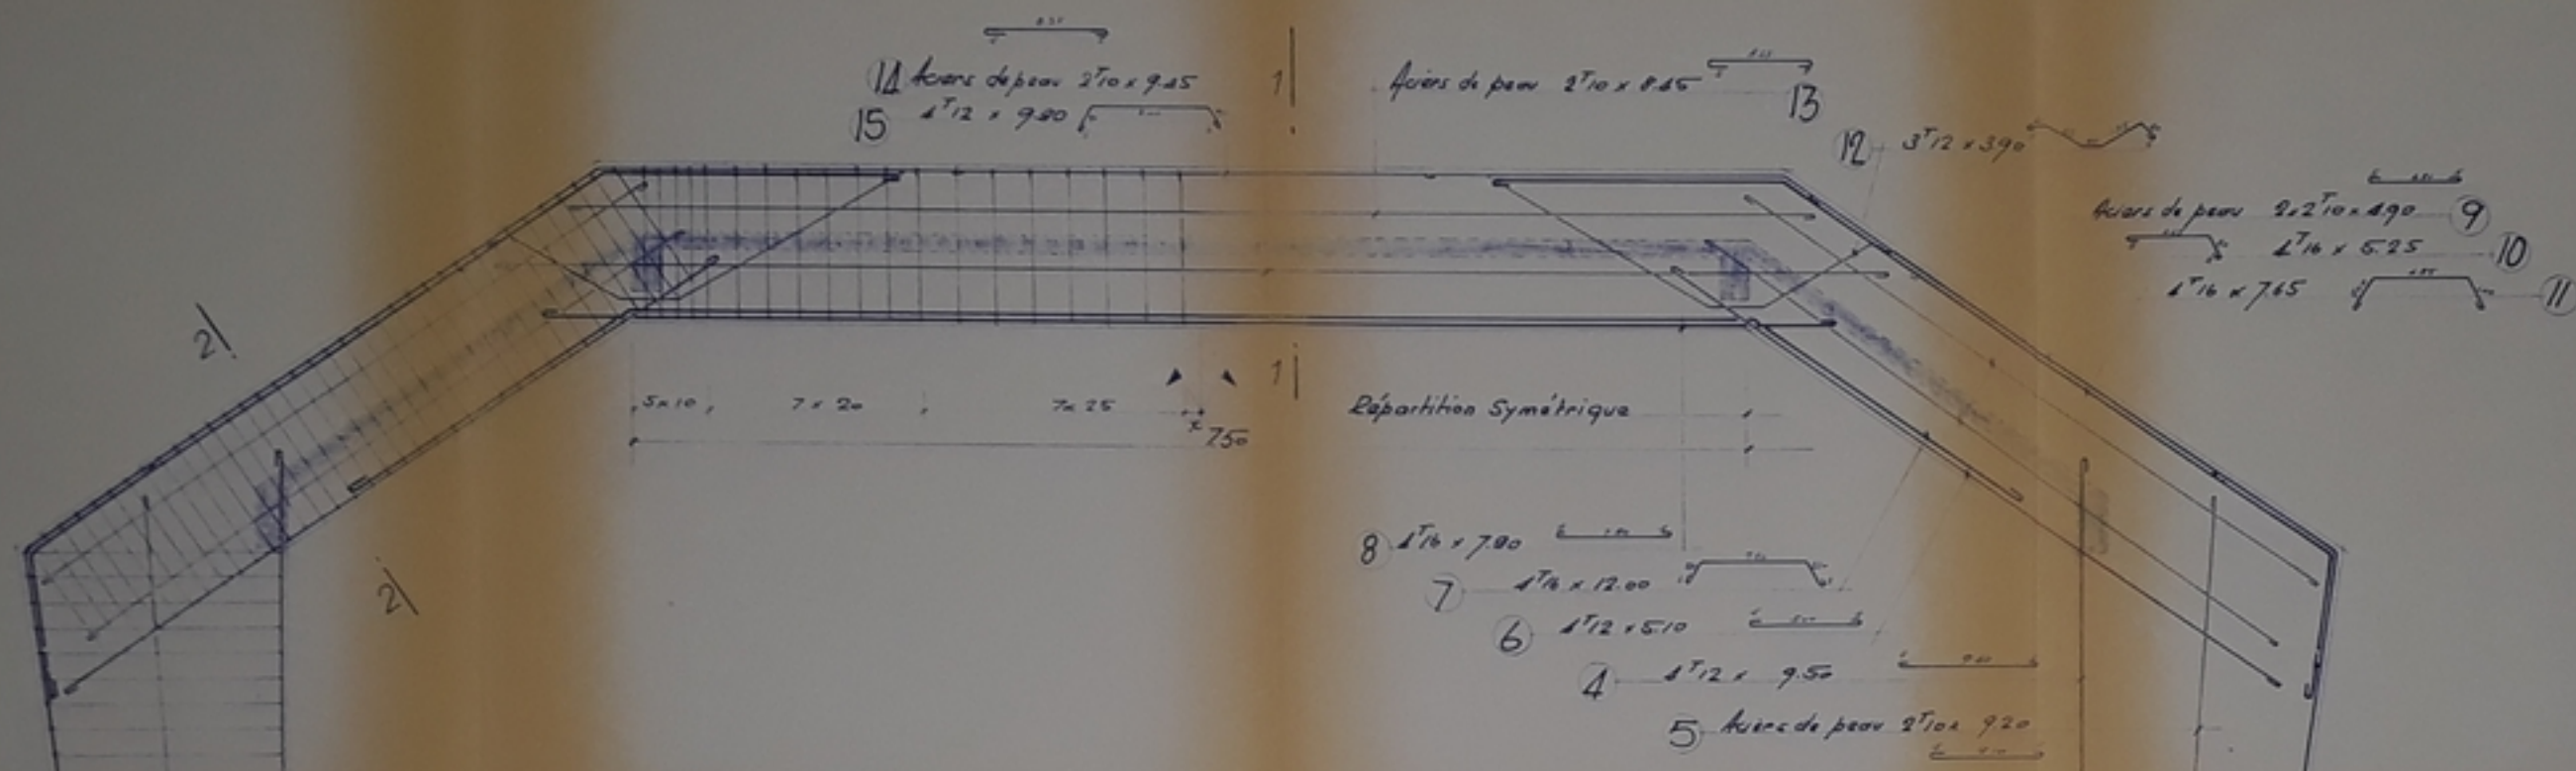 14 Aciers de peau 2T10 x 9.45
15 4T12 x 9.80
1
Aciers de peau 2T10 x 8.45
13
12 3T12 x 3.90
Aciers de peau 2x2T10 x 4.90 9
4T16 x 5.25 10
4T16 x 7.65 11
2
1
5x10 7x20 7x25
7.50
Répartition Symétrique
8 4T16 x 7.80
7 4T16 x 12.00
2
6 4T12 x 5.10
4 4T12 x 9.50
5 Aciers de peau 2T10x 9.20